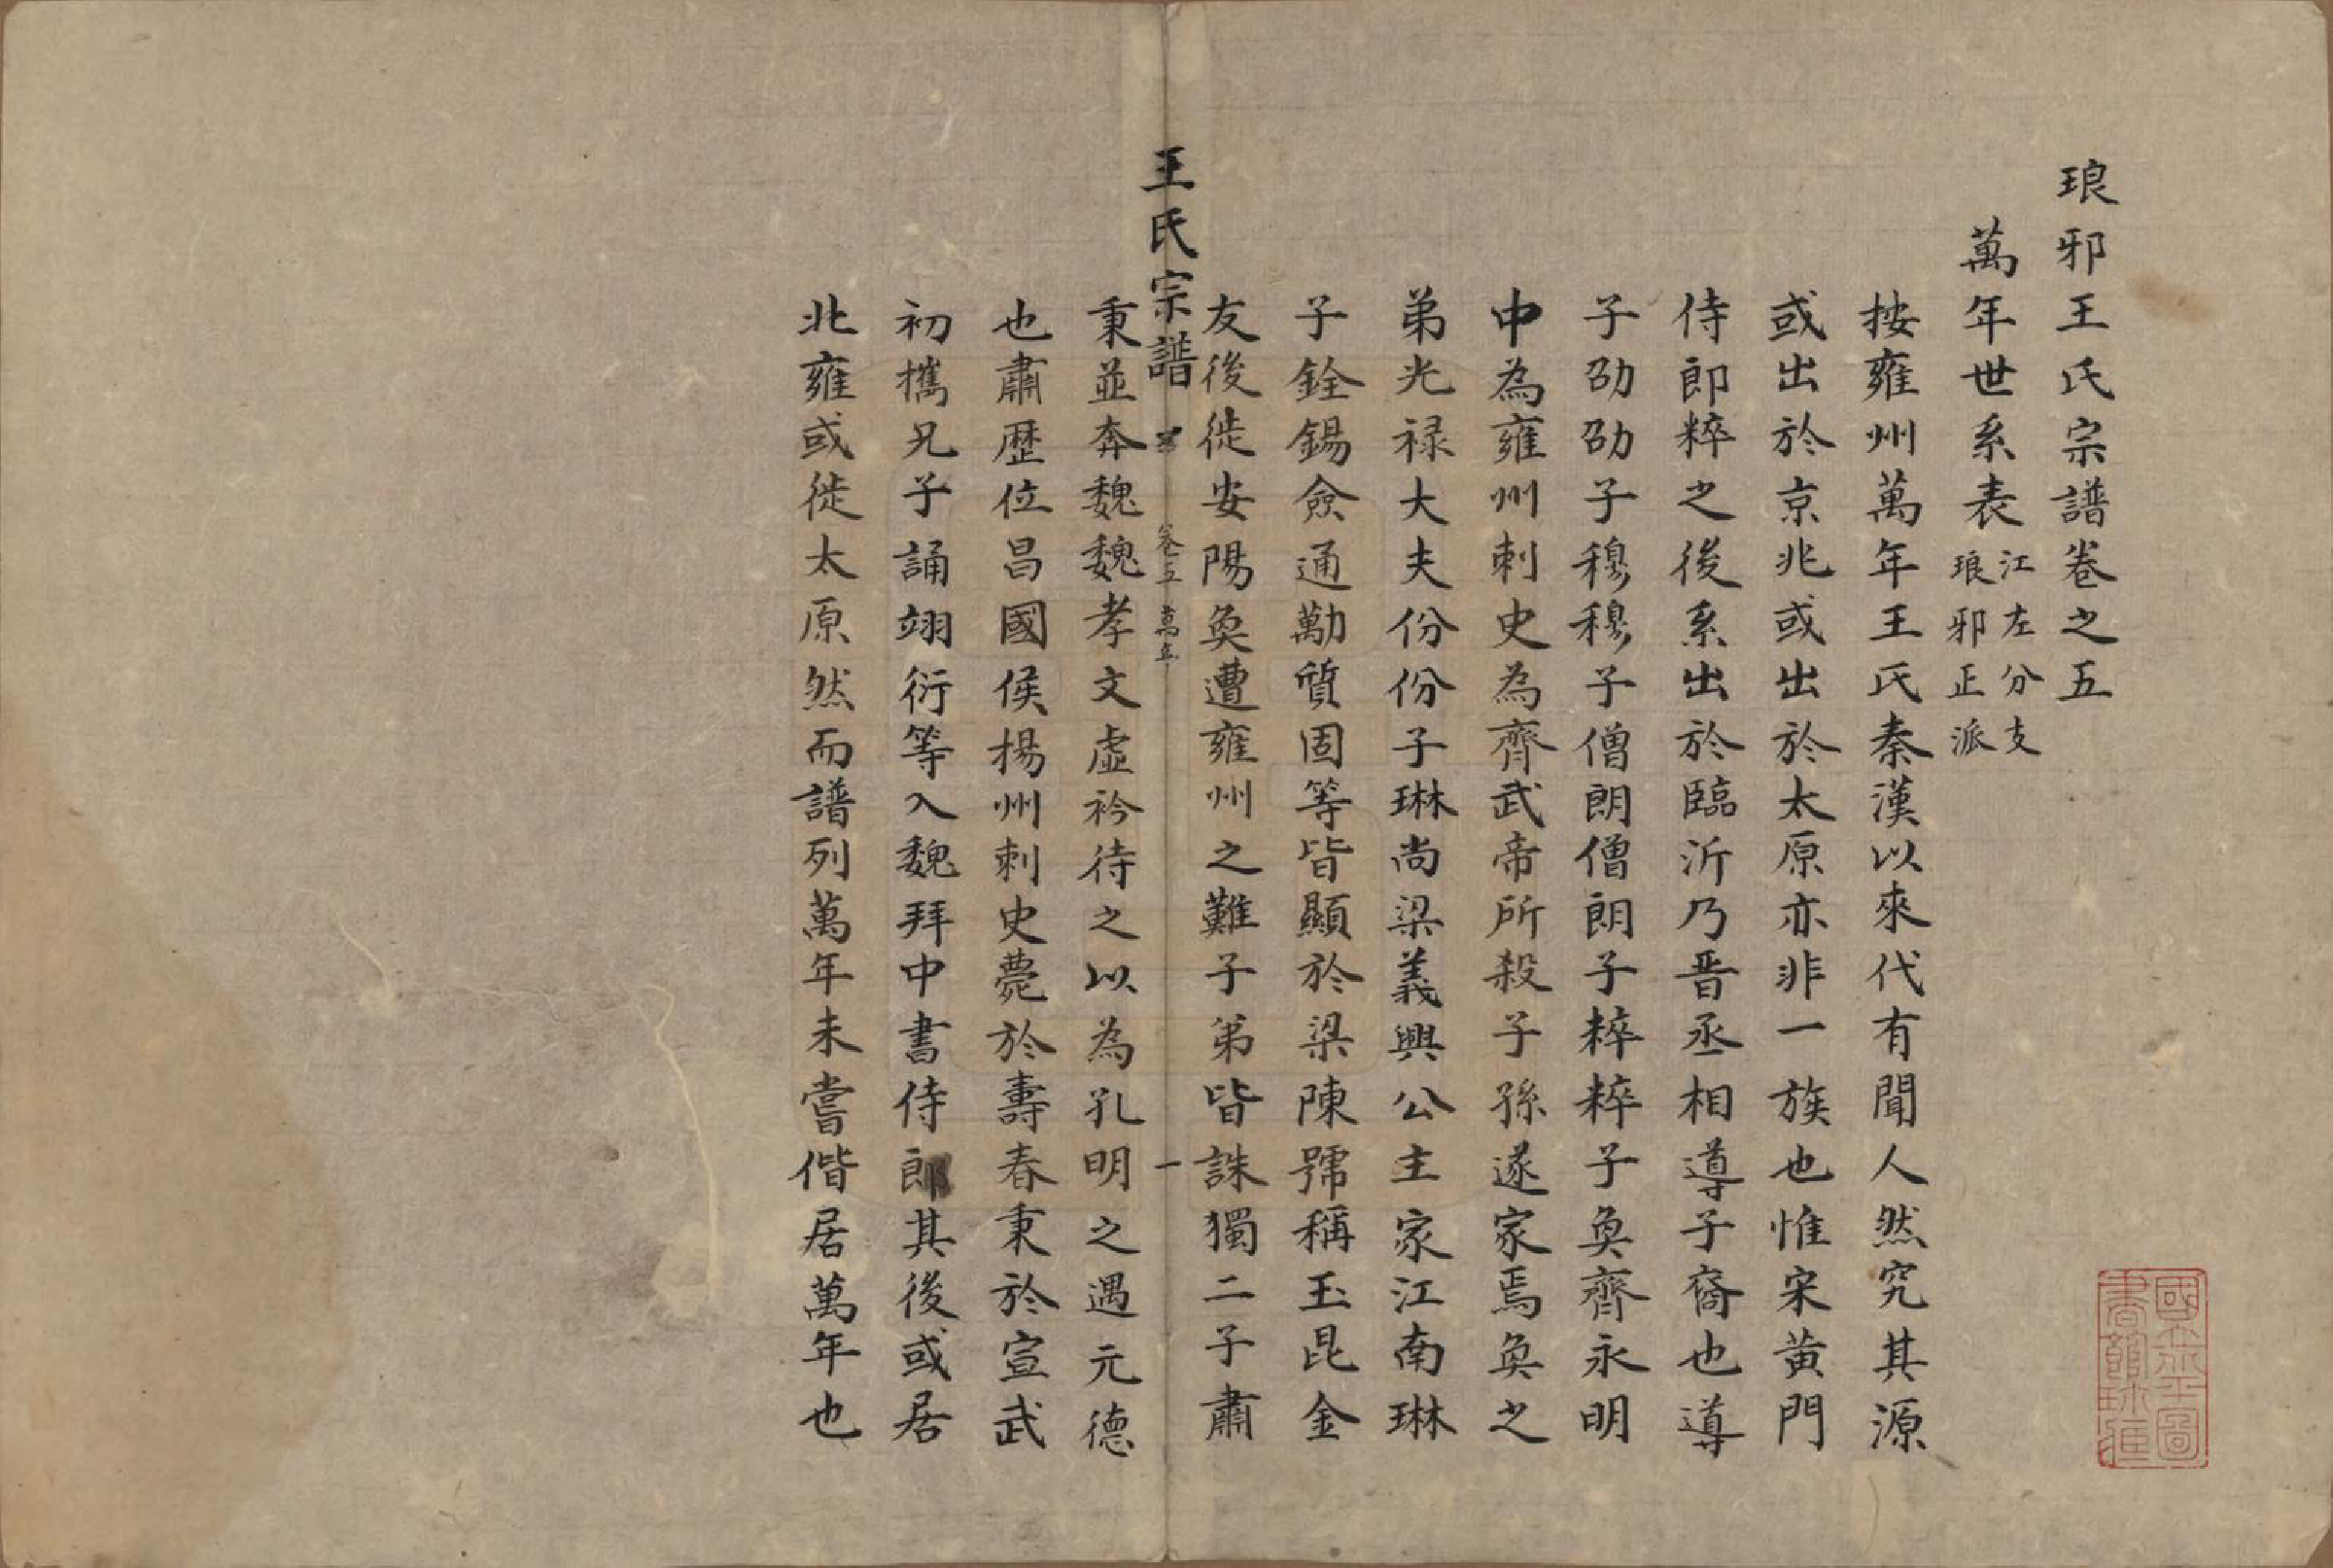 琅邪王氏宗譜卷之五
萬年世系表江左分支琅邪正派
按雍州萬年王氏秦漢以來代有聞人然究其源
或出於京兆或出於太原亦非一族也惟宋黃門
侍郎粹之後系出於臨沂乃晉丞相導子裔也導
子劭劭子穆穆子僧朗僧朗子粹粹子奐齊永明
中為雍州刺史為齊武帝所殺子孫遂家焉奐之
弟光禄大夫份份子琳尚梁義興公主家江南琳
子銓錫僉通勱質固等皆顯於梁陳號稱玉昆金
友後徙安陽奐遭雍州之難子弟皆誅獨二子肅
王氏宗譜 卷五 萬年 一
秉並奔魏魏孝文虛衿待之以為孔明之遇元德
也肅歷位昌國侯揚州刺史薨於壽春秉於宣武
初攜兄子誦翊衍等入魏拜中書侍郎其後或居
北雍或徙太原然而譜列萬年未嘗偕居萬年也
國立北平圖書館珍藏